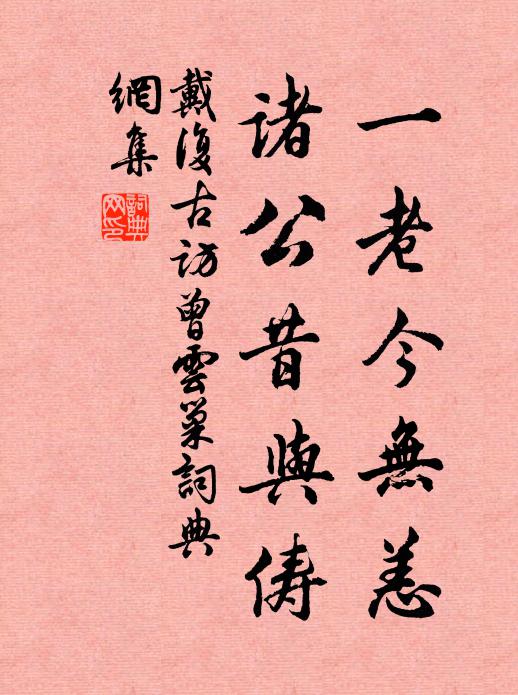 一老今無恙
諸公昔與儔
戴復古訪曾雲巢詞典
網集
詞典
网印